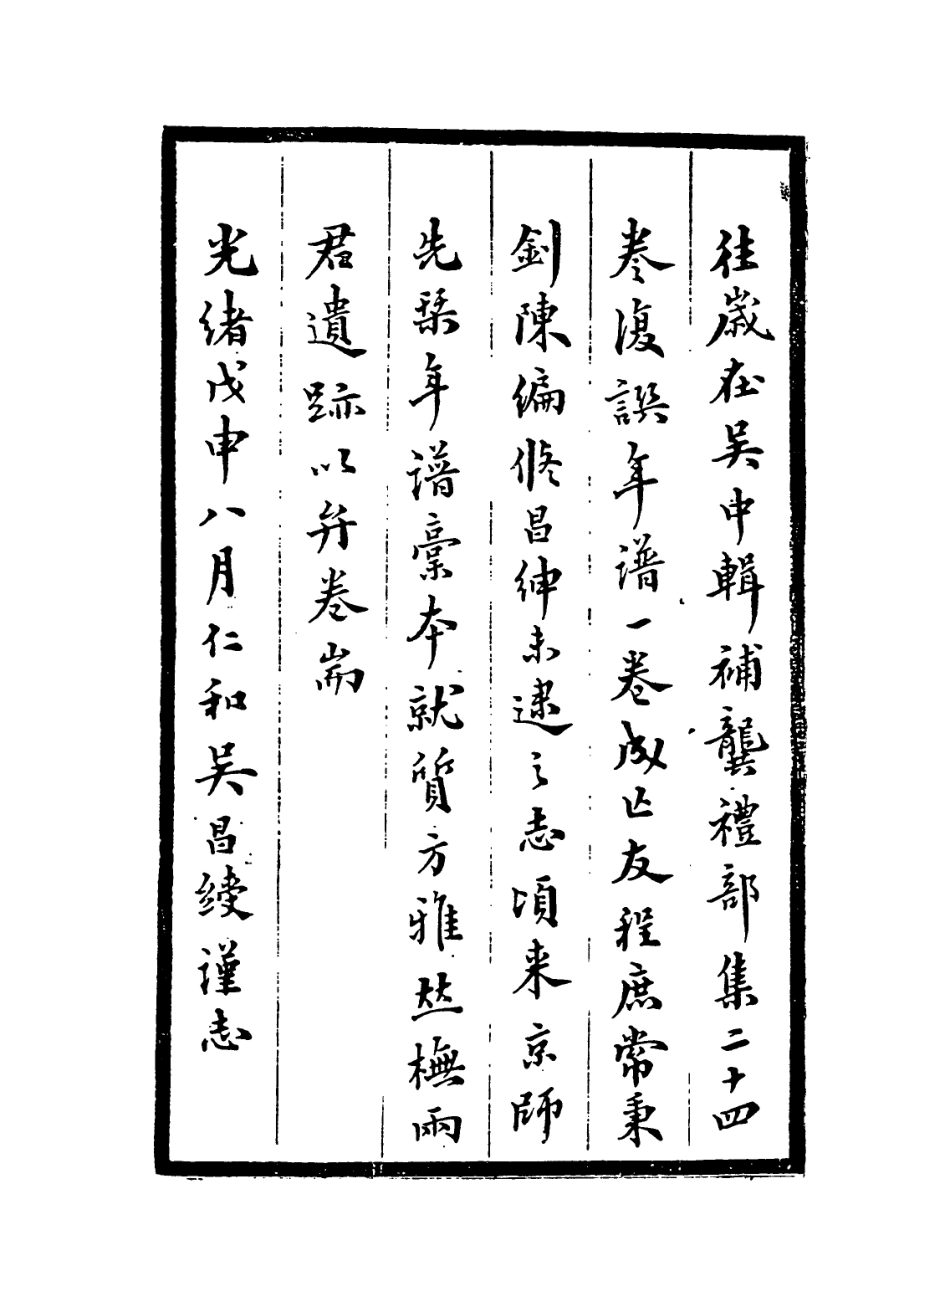 往歲在吳中輯補龔禮部集二十四
卷復譔年譜一卷成亡友程庶常秉
釗陳編修昌紳未逮之志頃来京師
先栞年譜稾本就質方雅並橅兩
君遺跡以弁卷耑
光緒戊申八月仁和吳昌綬謹志